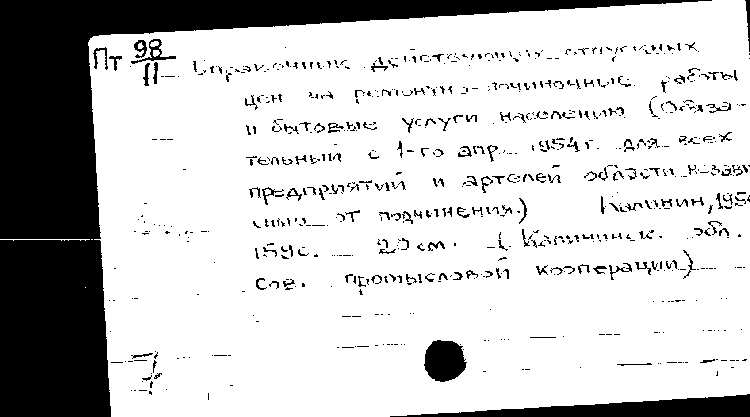 Пт 98/II Справочник действующих отпускных
цен на ремонтно-починочные работы
и бытовые услуги населению (Обяза-
тельный с 1-го апр. 1954 г. для всех
предприятий и артелей области независ
имо от подчинения.) Калинин, 195
159 с. 20 см. (Калининск. обл.
сов. промысловой кооперации)